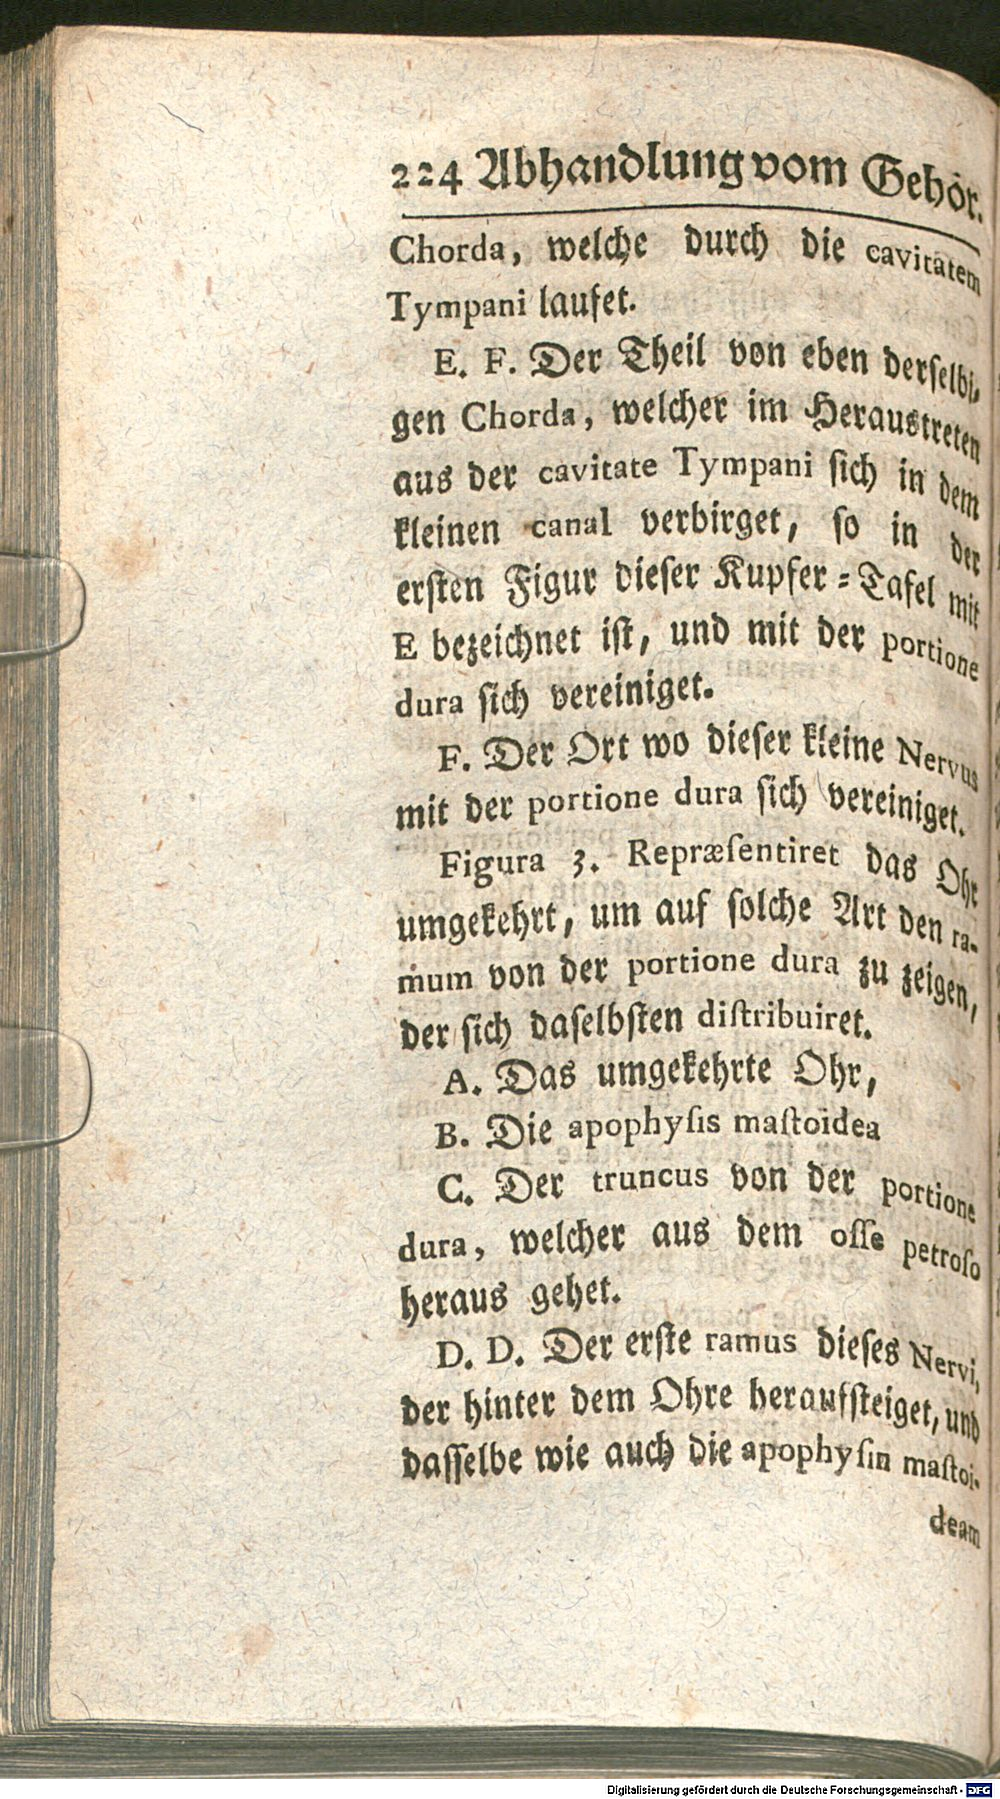 224 Abhandlung vom Gehör.
Chorda, welche durch die cavitatem
Tympani laufet.
E. F. Der Theil von eben derselbi-
gen Chorda, welcher im Heraustreten
aus der cavitate Tympani sich in dem
kleinen canal verbirget, so in der
ersten Figur dieser Kupfer=Tafel mit
E bezeichnet ist, und mit der portione
dura sich vereiniget.
F. Der Ort wo dieser kleine Nervus
mit der portione dura sich vereiniget.
Figura 3. Repræsentiret das Ohr
umgekehrt, um auf solche Art den ra-
mum von der portione dura zu zeigen,
der sich daselbsten distribuiret.
A. Das umgekehrte Ohr,
B. Die apophysis mastoidea
C. Der truncus von der portione
dura, welcher aus dem osse petroso
heraus gehet.
D. D. Der erste ramus dieses Nervi,
der hinter dem Ohre heraufsteiget, und
dasselbe wie auch die apophysin mastoi-
deam
Digitalisierung gefördert durch die Deutsche Forschungsgemeinschaft - DFG